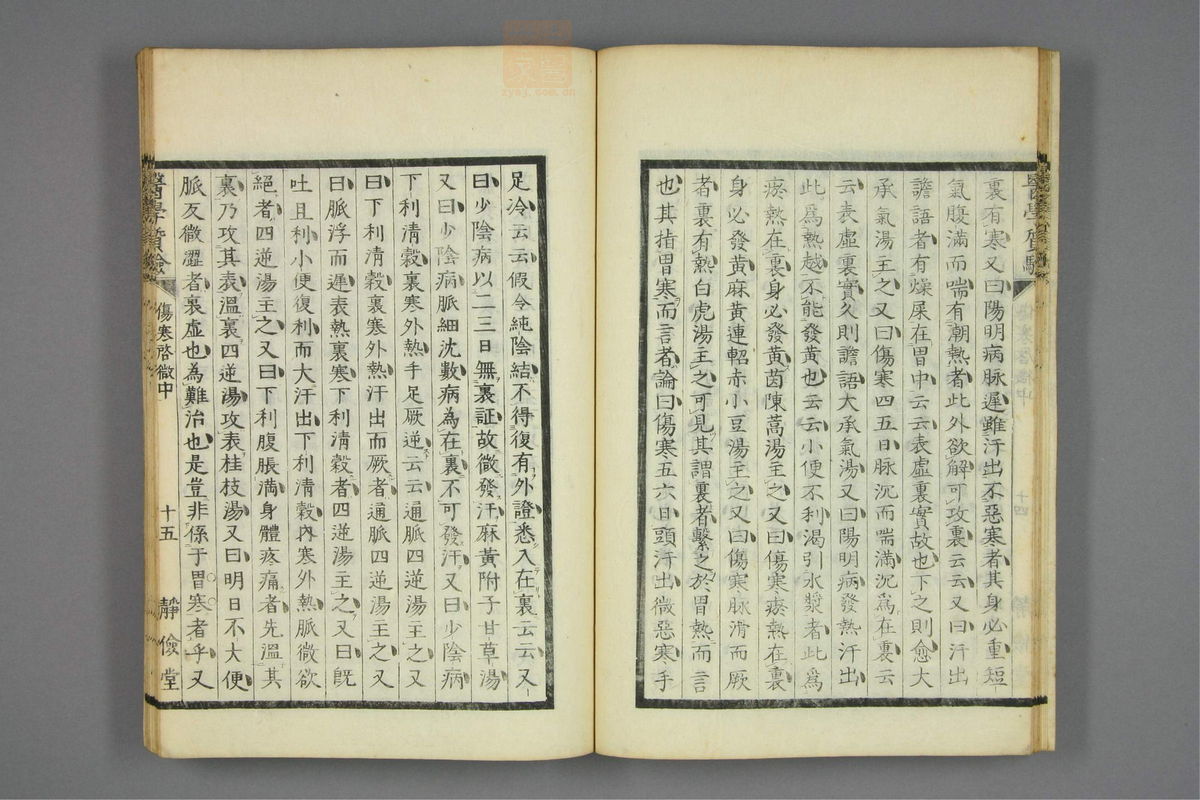 裏有寒又曰陽明病脉遲雖汗出不惡寒者其身必重短
氣腹滿而喘有潮熱者此外欲解可攻裏云云又曰汗出
譫語者有燥屎在胃中云云表虛裏實故也下之則愈大
承氣湯主之又曰傷寒四五日脉沉而喘滿沉爲在裏云
云表虛裏實久則譫語大承氣湯又曰陽明病發熱汗出
此爲熱越不能發黃也云云小便不利渴引水漿者此爲
瘀熱在裏身必發黃茵陳蒿湯主之又曰傷寒瘀熱在裏
身必發黃麻黃連軺赤小豆湯主之又曰傷寒脉滑而厥
者裏有熱白虎湯主之可見其謂裏者繫之於胃熱而言
也其指胃寒而言者論曰傷寒五六日頭汗出微惡寒手
醫學質驗
傷寒啓微中
十四
足冷云云假令純陰結不得復有外證悉入在裏云云又
曰少陰病以二三日無裏証故微發汗麻黃附子甘草湯
又曰少陰病脈細沈數病為在裏不可發汗又曰少陰病
下利清穀裏寒外熱手足厥逆云云通脈四逆湯主之又
曰下利清穀裏寒外熱汗出而厥者通脈四逆湯主之又
曰脈浮而遲表熱裏寒下利清穀者四逆湯主之又曰既
吐且利小便復利而大汗出下利清穀內寒外熱脈微欲
絕者四逆湯主之又曰下利腹脹満身體疼痛者先溫其
裏乃攻其表溫裏四逆湯攻表桂枝湯又曰明日不大便
脈反微澀者裏虛也為難治也是豈非係于胃寒者乎又
醫學質驗
傷寒啓微中
十五
靜儉堂
zysj.com.cn